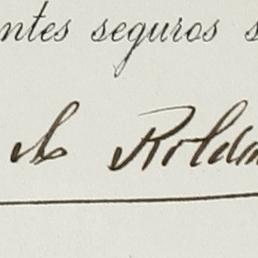 ntes seguros s
A Roldá